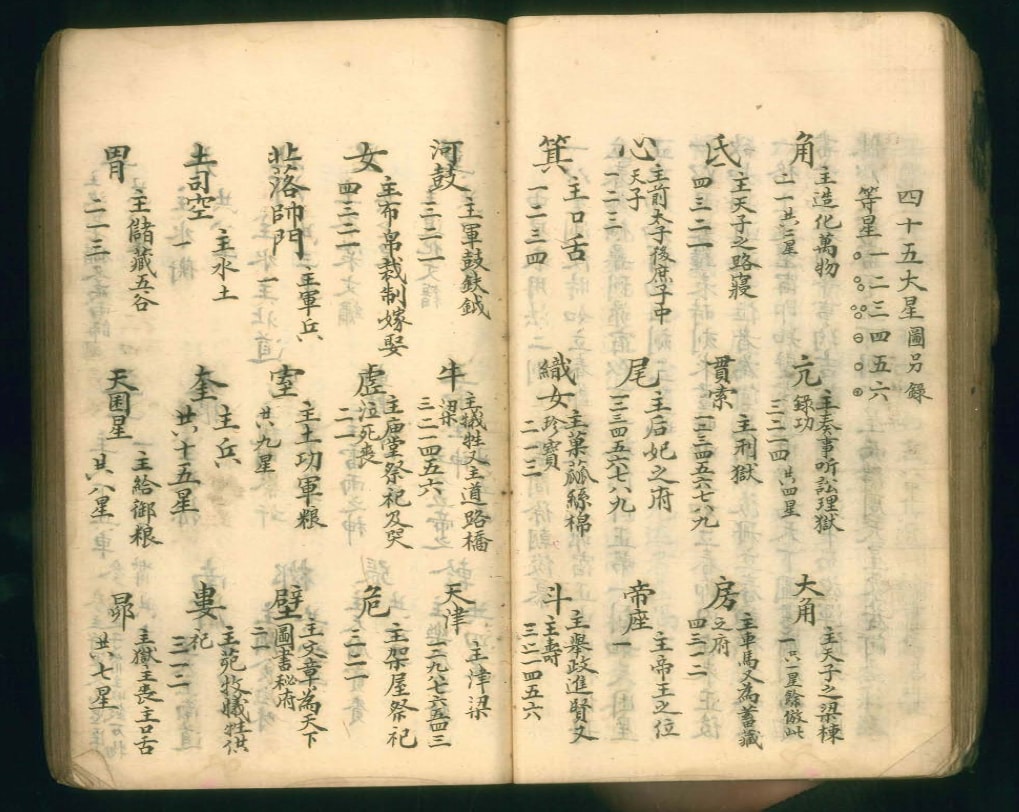 四十五大星圖另録
等星 一二三四五六
角
主造化萬物
二一共二星
亢
主奏事听訟理獄
録功
三二一四共四星
大角
主天子之梁棟
一只一星餘倣此
氐
主天子之路寢
四三二一
貫索
主刑獄
一二三四五六七八九
房
主車馬又為蓄藏
之府
四三一二
心
主前太子後庶子中
天子
一二三
尾
主后妃之府
一二三四五六七八九
帝座
主帝王之位
一
箕
主口舌
一二三四
織女
主菓蓏絲棉
珍寶
二一三
斗
主舉政進賢又
主壽
三二一四五六
河鼓
主軍鼓鈇鉞
三二一
牛
主犧牲又主道路橋
梁
三二一四五六
天津
主津梁
一二九八七六五四三
女
主布帛裁制嫁娶
四三二一
虛
主庙堂祭祀及哭
泣死喪
二一
危
主架屋祭祀
三二一
北落帥門
主軍兵
一
室
主土功軍粮
共九星
壁
主文章為天下
圖書秘府
二一
土司空
主水土
一
奎
主兵
共十五星
婁
主苑牧犧牲供
祀
三一二
胃
主儲藏五谷
二一三
天囷星
主給御粮
共八星
昴
主獄主喪主口舌
共七星